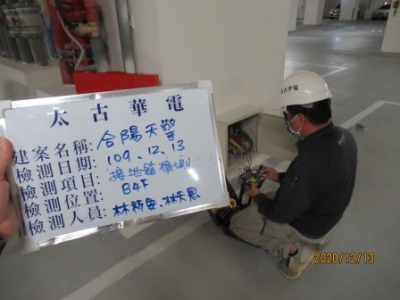 太古華電
建案名稱: 合陽天擎
檢測日期: 109.12.13
檢測項目: 接地箱檢測
檢測位置: B4F
檢測人員: 林裕臣、林天恩
太古華電
2020/12/13